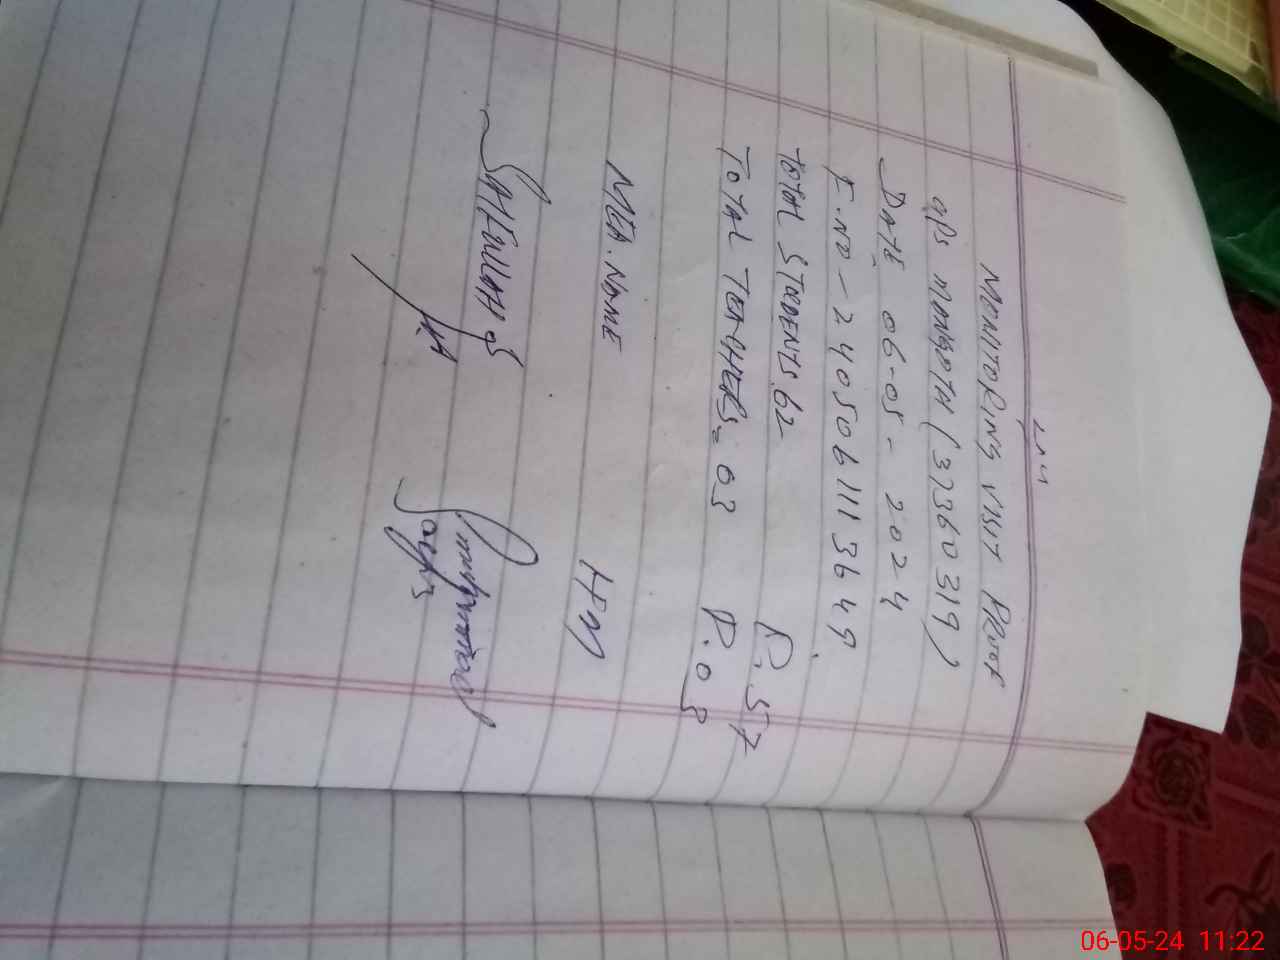 MONITORING VISIT PROOF
GPS MANGOTH (37360319)
DATE 06-05-2024
F.NO- 2405061113649
TOTAL STUDENTS. 62 P. 57
TOTAL TEACHERS= 03 P. 03
MEA. NAME HM
06-05-24 11:22